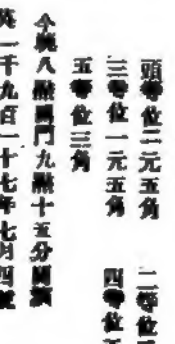 頭等位二元五角
二等位
三等位一元五角
四等位
五等位三角
今晚八點開門九點十五分開演
英一千九百一十七年七月四號